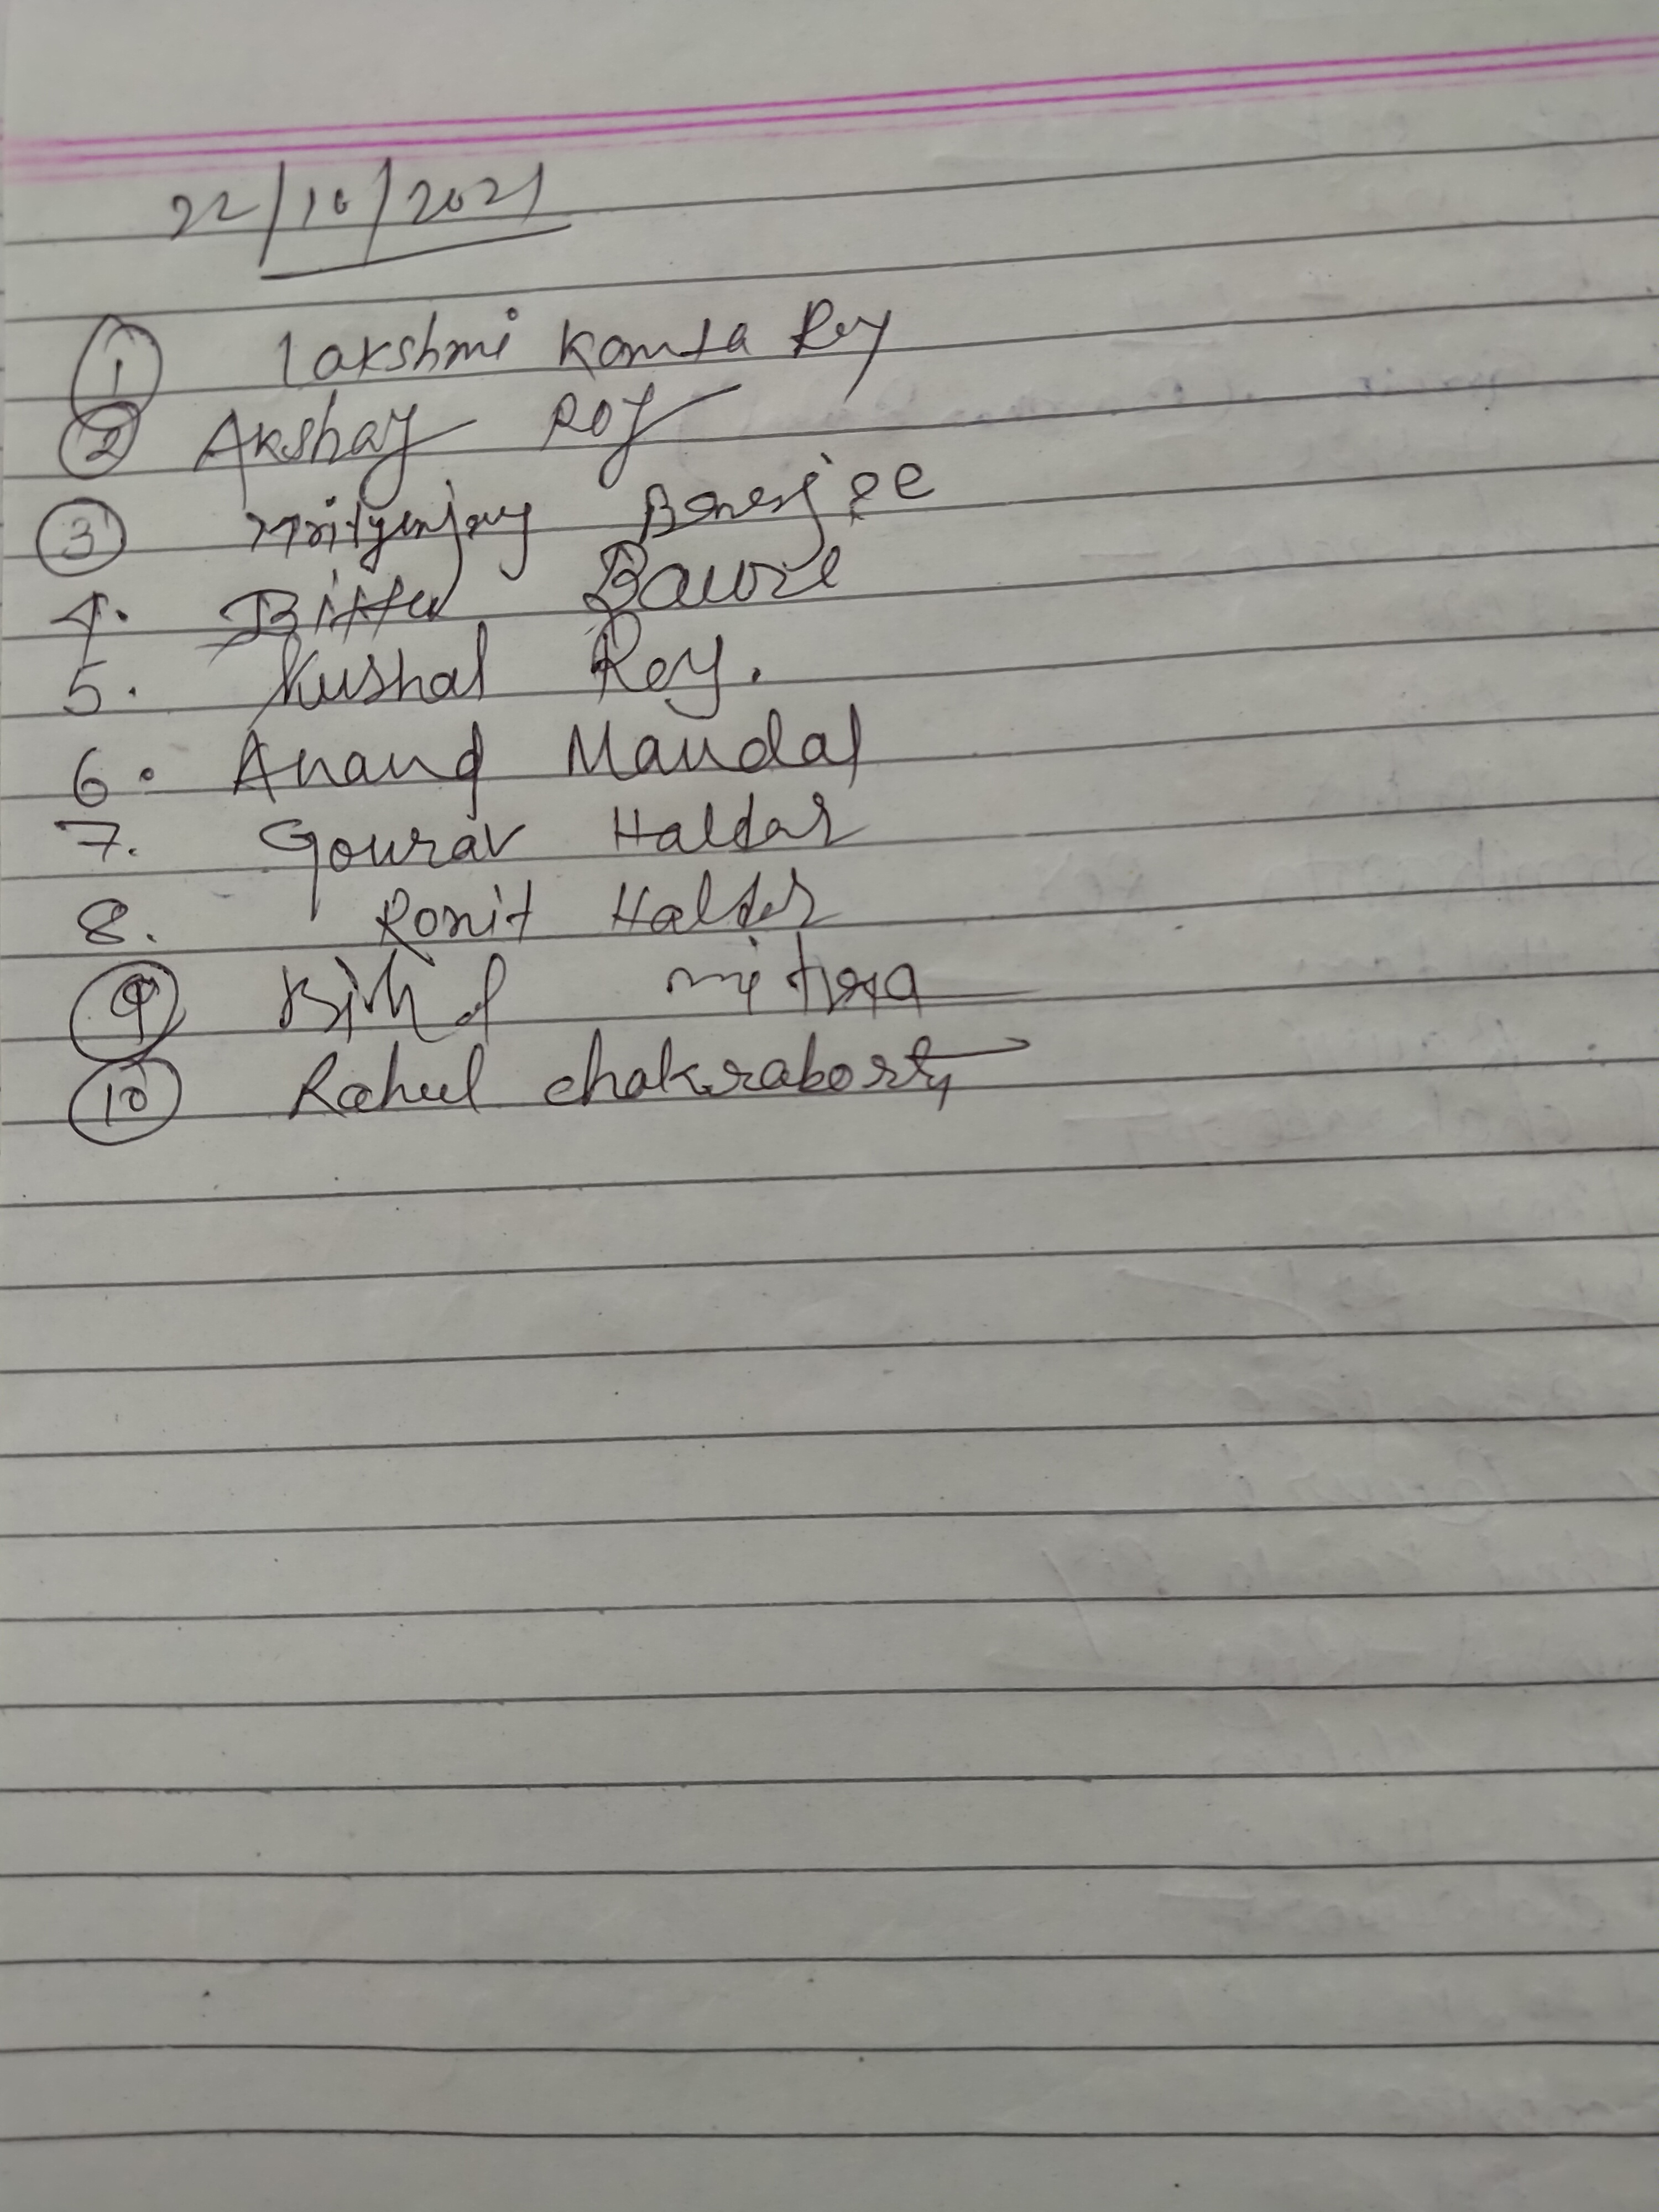 22/10/2021
1 Lakshmi Kanta Roy
2 Akshay Roy
3 Mrityunjay Banerjee
4. Bittu Bauri
5. Kushal Roy.
6. Anand Mandal
7. Gourav Haldar
8. Ronit Haldar
9 mitra
10 Rahul chakraborty